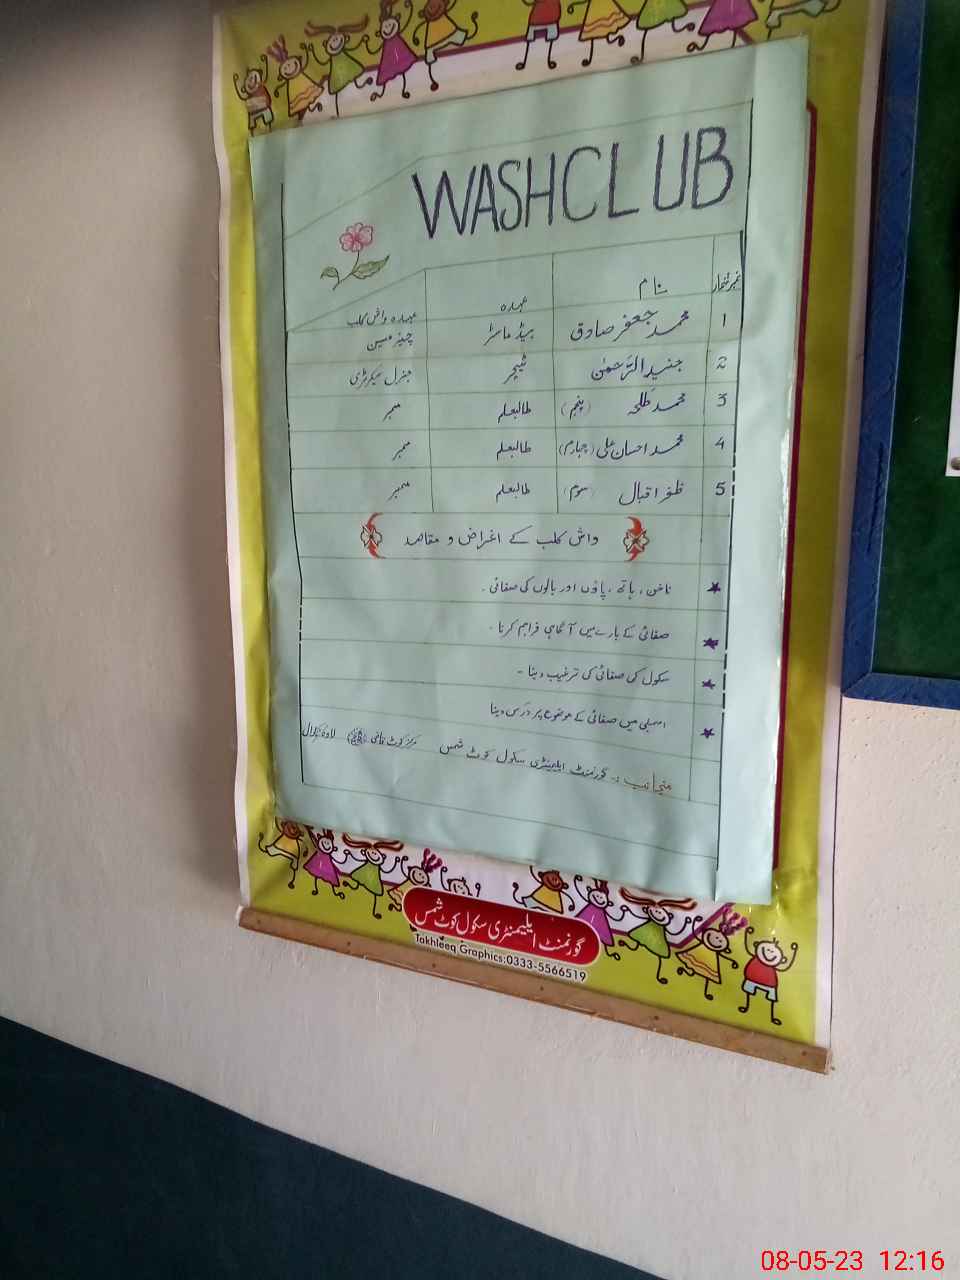 WASH CLUB
نمبر شمار نام عہدہ عہدہ واش کلب
1 محمد جعفر صادق ہیڈ ماسٹر چیئرمین
2 جنید الرحمٰن ٹیچر جنرل سیکرٹری
3 محمد طلحہ (پنجم) طالبعلم ممبر
4 محمد احسان علی (چہارم) طالبعلم ممبر
5 ظفر اقبال (سوم) طالبعلم ممبر
واش کلب کے اغراض و مقاصد
ناخن، ہاتھ، پاؤں اور بالوں کی صفائی۔
صفائی کے بارے میں آگاہی فراہم کرنا۔
سکول کی صفائی کی ترغیب دینا۔
اسمبلی میں صفائی کے موضوع پر درس دینا
منجانب:۔ گورنمنٹ ایلیمنٹری سکول کوٹ شمس مرکز کوٹ قاضی
گورنمنٹ ایلیمنٹری سکول کوٹ شمس
Takhleeq Graphics:0333-5566519
08-05-23 12:16